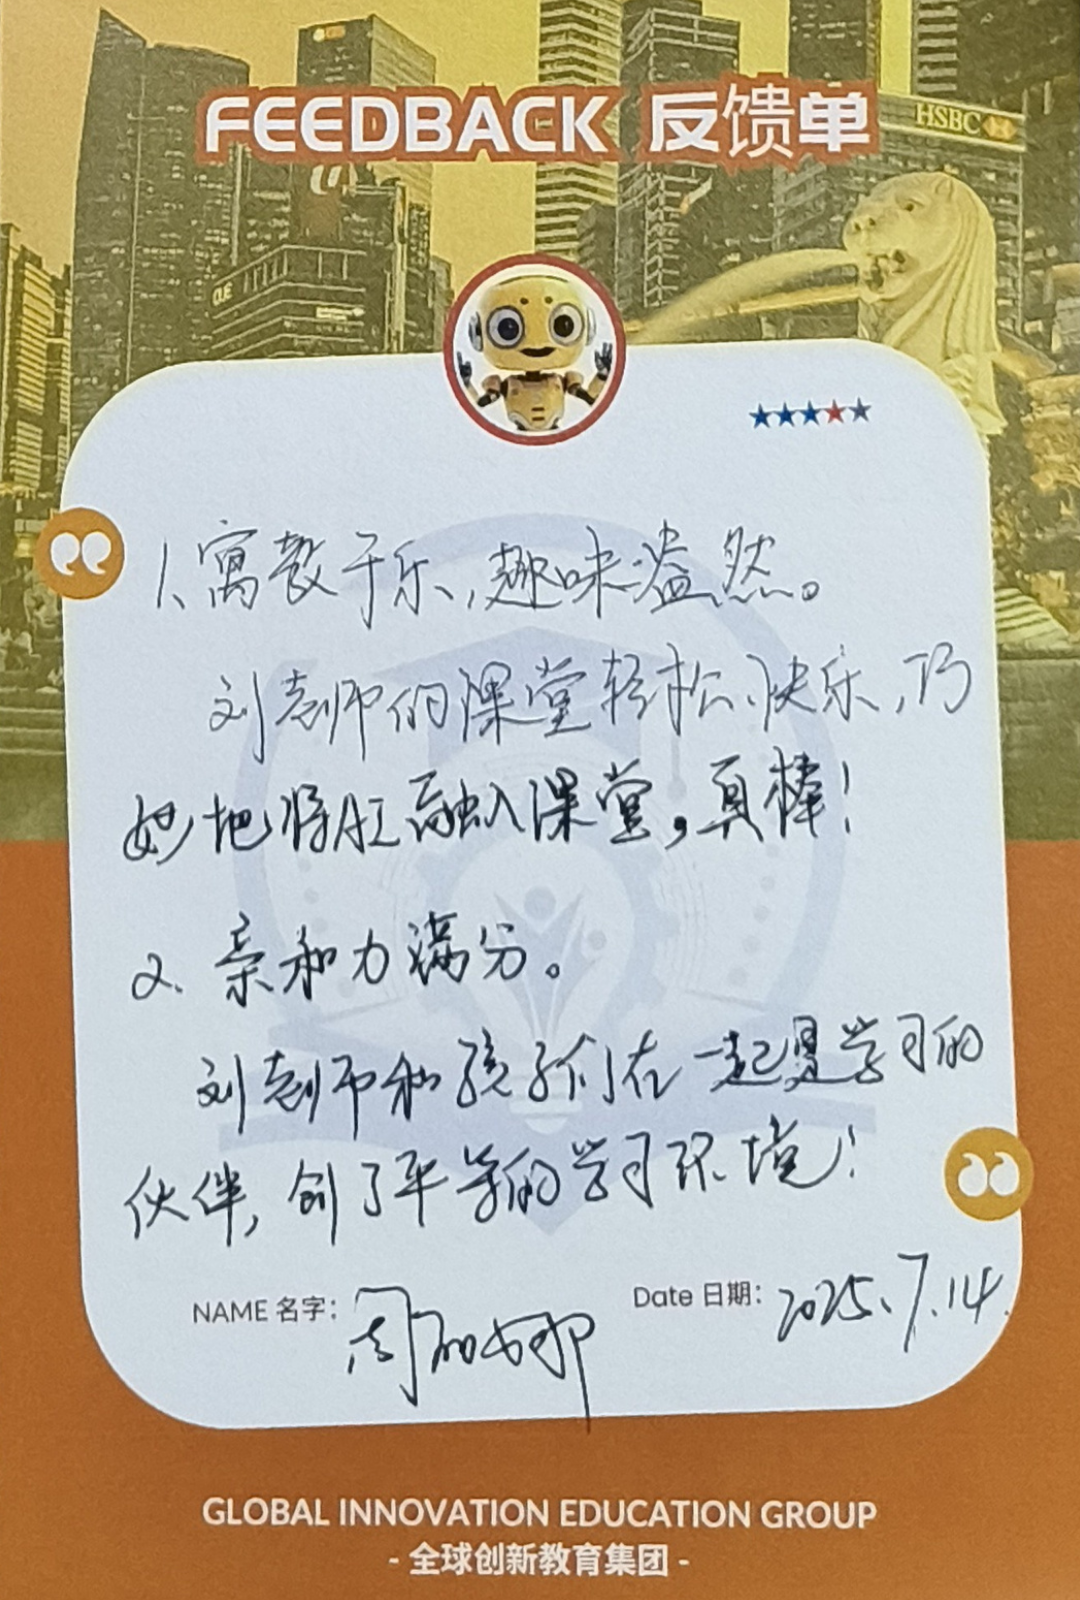 FEEDBACK 反馈单
HSBC
OUE
1、寓教于乐，趣味盎然。
刘老师的课堂轻松、快乐，巧
妙地将AI融入课堂，真棒！
2、亲和力满分。
刘老师和孩子们在一起是学习的
伙伴，创了平等的学习环境！
NAME 名字：周
Date 日期：2025.7.14.
GLOBAL INNOVATION EDUCATION GROUP
- 全球创新教育集团 -